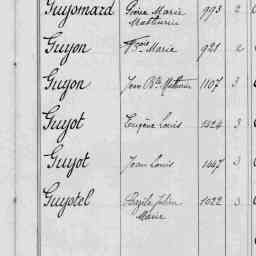 Guyomard Pierre Marie 993 2
Mathurin
Guyon Fçois Marie 921 2
Guyon Jean Bte Mathurin 1107 3
Guyot Eugène Louis 1324 3
Guyot Jean Louis 1447 3
Guystel Bazile Julien 1022 3
Marie